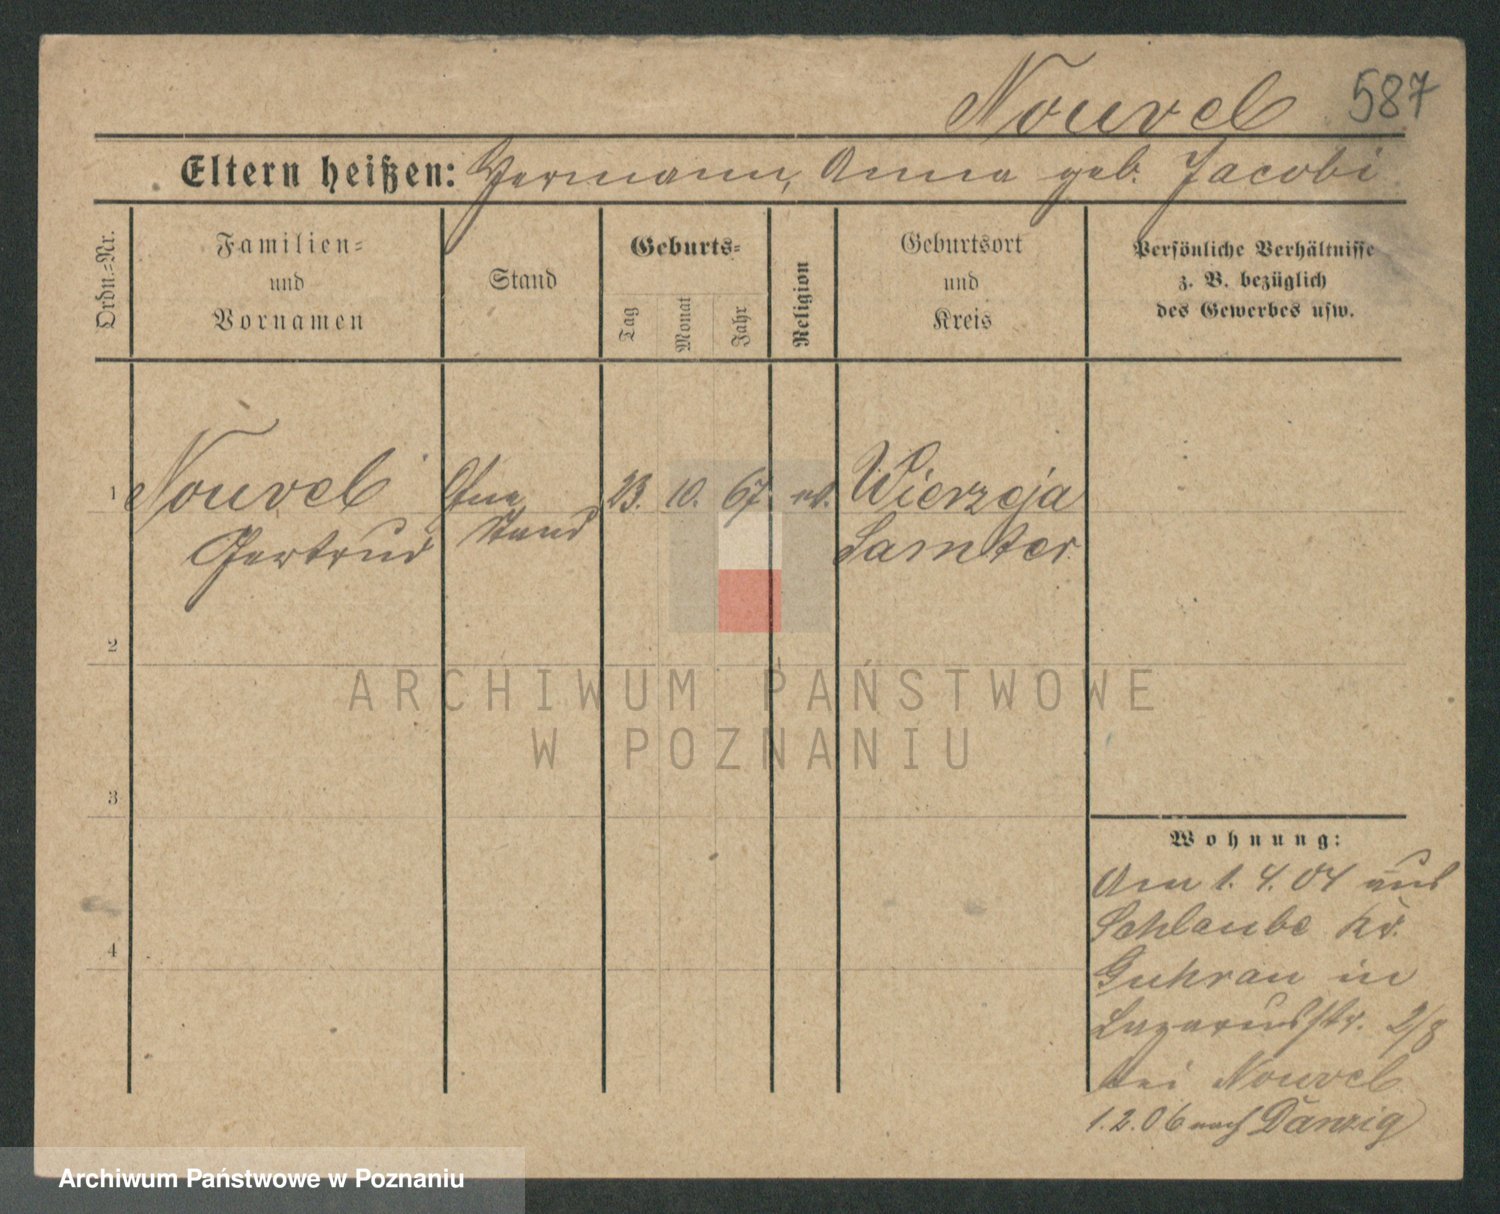 Nouvel 587
Eltern heißen: Hermann, Anna geb. Jacobi
Ordn.=Nr.
Familien=
und
Vornamen
Stand
Geburts=
Tag
Monat
Jahr
Religion
Geburtsort
und
Kreis
Persönliche Verhältnisse
z. B. bezüglich
des Gewerbes usw.
1 Nouvel Ohne 23. 10. 67. ev. Wierzeja
Gertrud Stand Samter.
2
3
4
Wohnung:
Am 1. 4. 04 aus
Schlaube Kr.
Guhrau in
Lazarusstr. 2/8
bei Nouvel
1.2.06 nach Danzig
ARCHIWUM PAŃSTWOWE
W POZNANIU
Archiwum Państwowe w Poznaniu